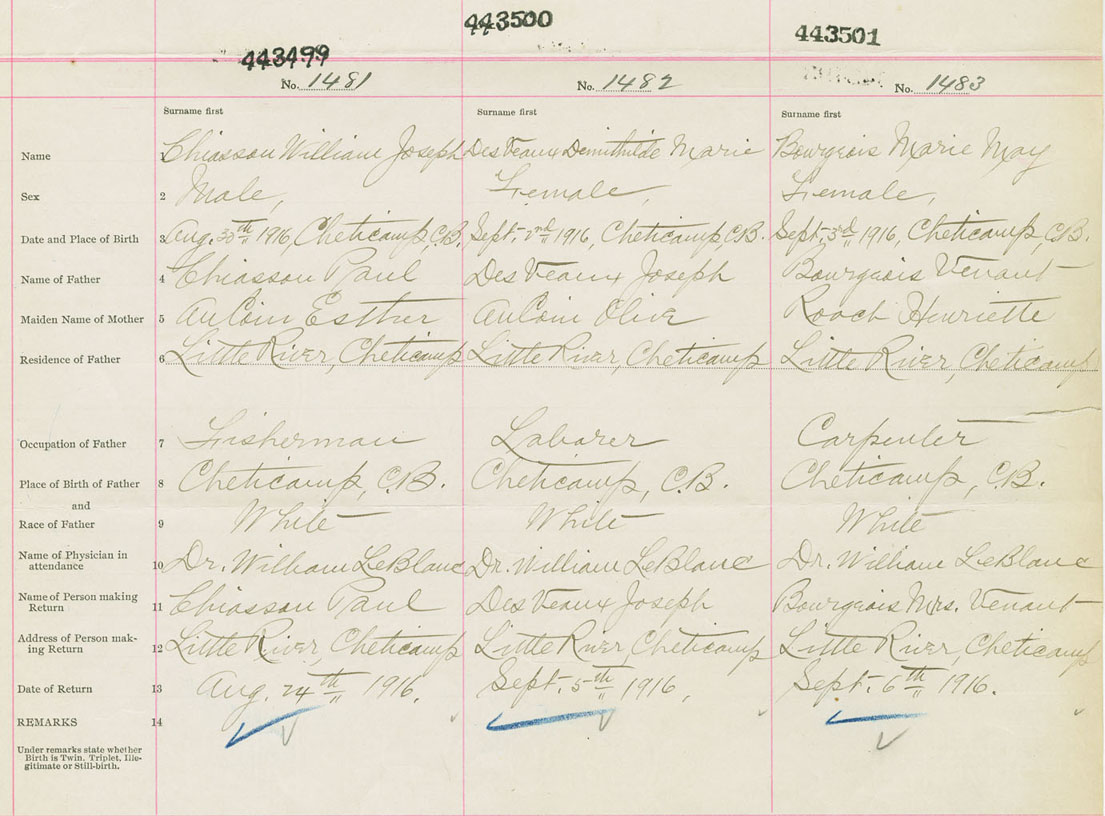 443499 443500 443501
No. 1481 No. 1482 No. 1483
Surname first Surname first Surname first
Name 1 Chiasson William Joseph DesVeaux Demithilde Marie Bourgeois Marie May
Sex 2 Male, Female, Female,
Date and Place of Birth 3 Aug. 30th 1916, Cheticamp, C.B. Sept. 2nd 1916, Cheticamp, C.B. Sept. 3rd 1916, Cheticamp, C.B.
Name of Father 4 Chiasson Paul DesVeaux Joseph Bourgeois Venant
Maiden Name of Mother 5 AuCoin Esther AuCoin Olive Roach Henriette
Residence of Father 6 Little River, Cheticamp Little River, Cheticamp Little River, Cheticamp
Occupation of Father 7 Fisherman Laborer Carpenter
Place of Birth of Father 8 Cheticamp, C.B. Cheticamp, C.B. Cheticamp, C.B.
and
Race of Father 9 White White White
Name of Physician in
attendance 10 Dr. William LeBlanc Dr. William LeBlanc Dr. William LeBlanc
Name of Person making
Return 11 Chiasson Paul DesVeaux Joseph Bourgeois Mrs. Venant
Address of Person mak-
ing Return 12 Little River, Cheticamp Little River, Cheticamp Little River, Cheticamp
Date of Return 13 Aug. 24th 1916, Sept. 5th 1916, Sept. 6th 1916.
REMARKS 14
Under remarks state whether
Birth is Twin. Triplet, Ille-
gitimate or Still-birth.